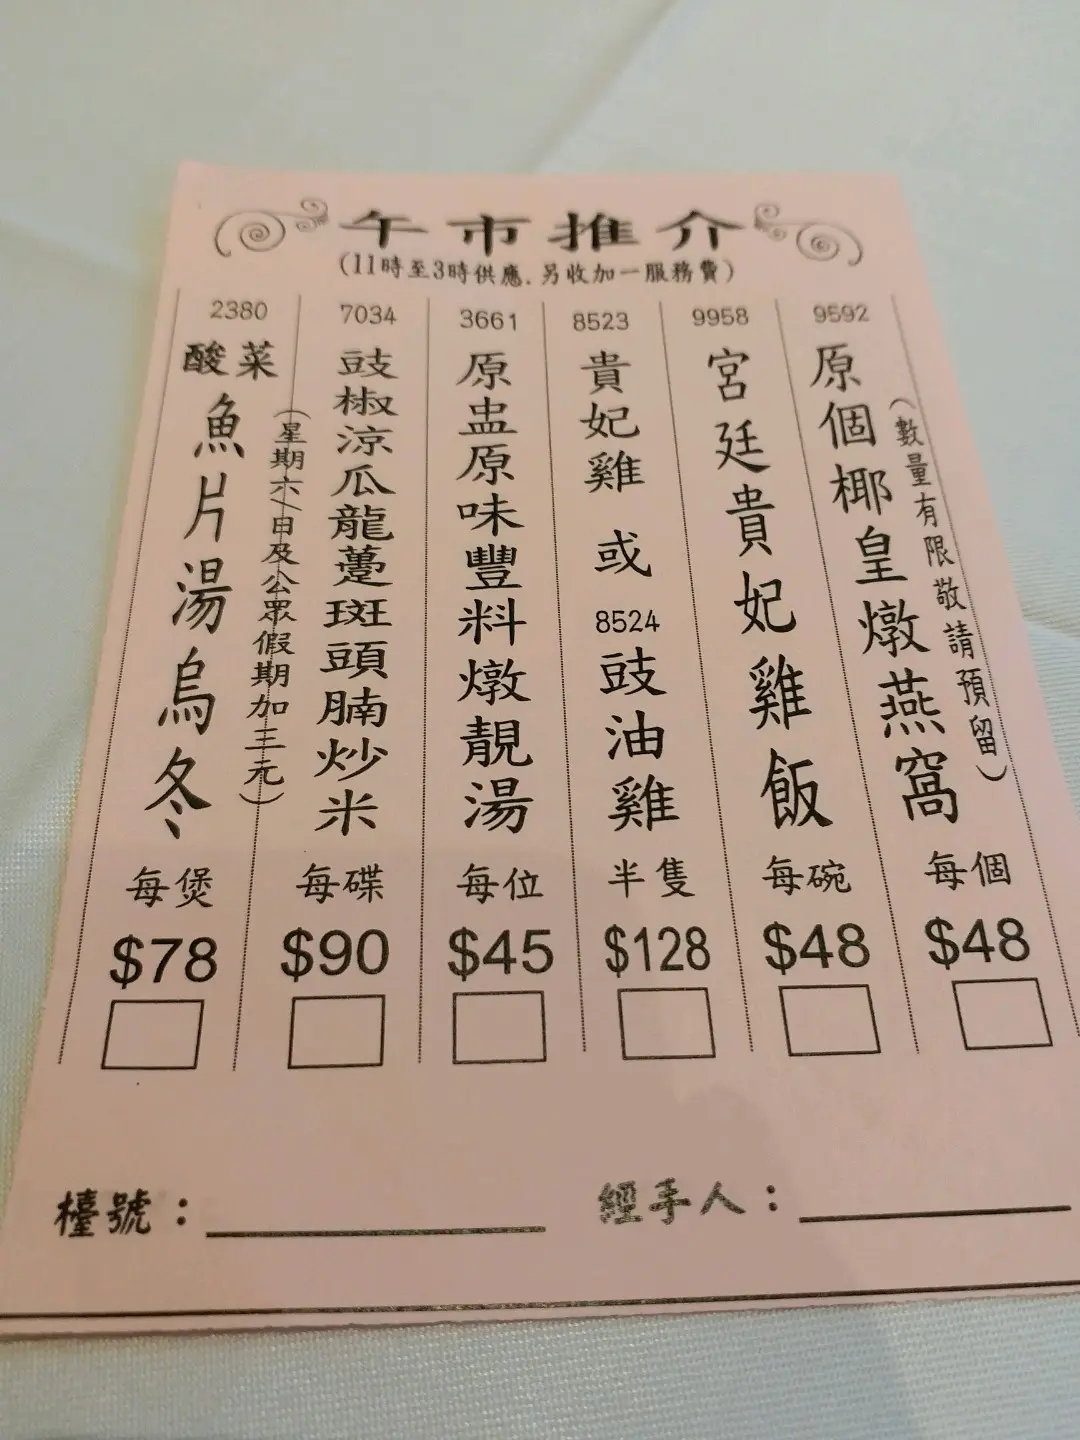 午市推介
(11時至3時供應.另收加一服務費)
9592
原個椰皇燉燕窩
(數量有限敬請預留)
每個
$48
9958
宮廷貴妃雞飯
每碗
$48
8523
貴妃雞
或
8524
豉油雞
半隻
$128
3661
原盅原味豐料燉靚湯
每位
$45
7034
豉椒涼瓜龍躉斑頭腩炒米
(星期六/日及公眾假期加三元)
每碟
$90
2380
酸菜
魚片湯烏冬
每煲
$78
檯號：
經手人：